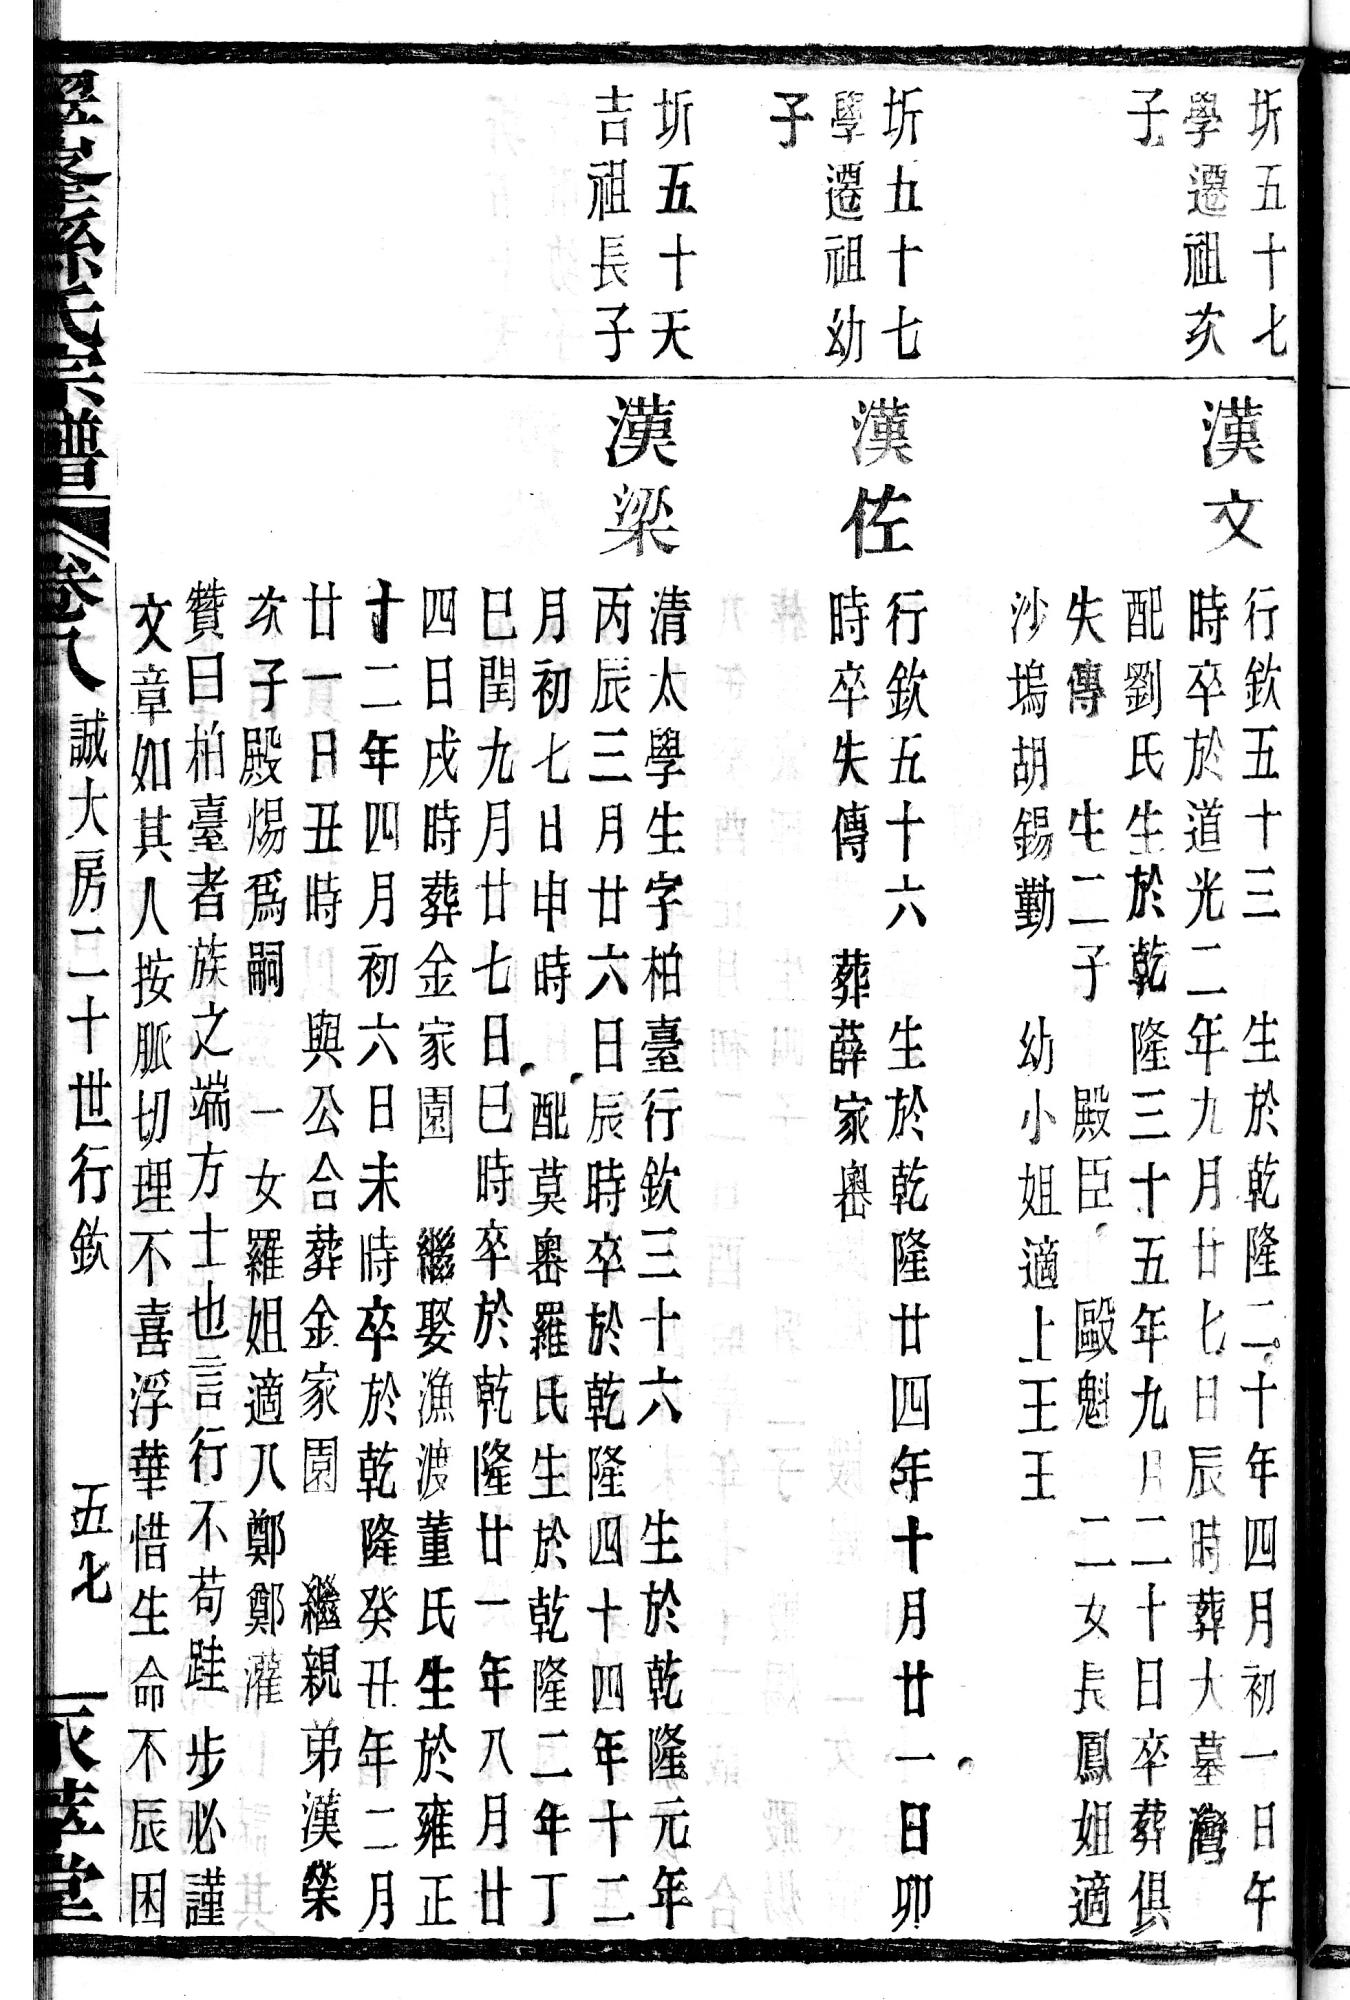 圻五十七
學遷祖次
子
漢文
行欽五十三　生於乾隆二十年四月初一日午
時卒於道光二年九月廿七日辰時葬大墓灣
配劉氏生於乾隆三十五年九月二十日卒葬俱
失傳　生二子　殿臣　毆魁　二女長鳳姐適
沙塢胡錫勤　幼小姐適上王王
圻五十七
學遷祖幼
子
漢佐
行欽五十六　生於乾隆廿四年十月廿一日卯
時卒失傳　葬薛家嶴
圻五十天
吉祖長子
漢梁
清太學生字柏臺行欽三十六　生於乾隆元年
丙辰三月廿六日辰時卒於乾隆四十四年十二
月初七日申時　配莫嶴羅氏生於乾隆二年丁
巳閏九月廿七日巳時卒於乾隆廿一年八月廿
四日戌時葬金家園　繼娶漁渡董氏生於雍正
十二年四月初六日未時卒於乾隆癸丑年二月
廿一日丑時　與公合葬金家園　繼親弟漢榮
次子殿煬爲嗣　一女羅姐適八鄭鄭灌
贊曰柏臺者族之端方士也言行不苟跬步必謹
文章如其人按脈切理不喜浮華惜生命不辰困
孫氏宗譜　卷八　誠大房二十世行欽　五七　堂